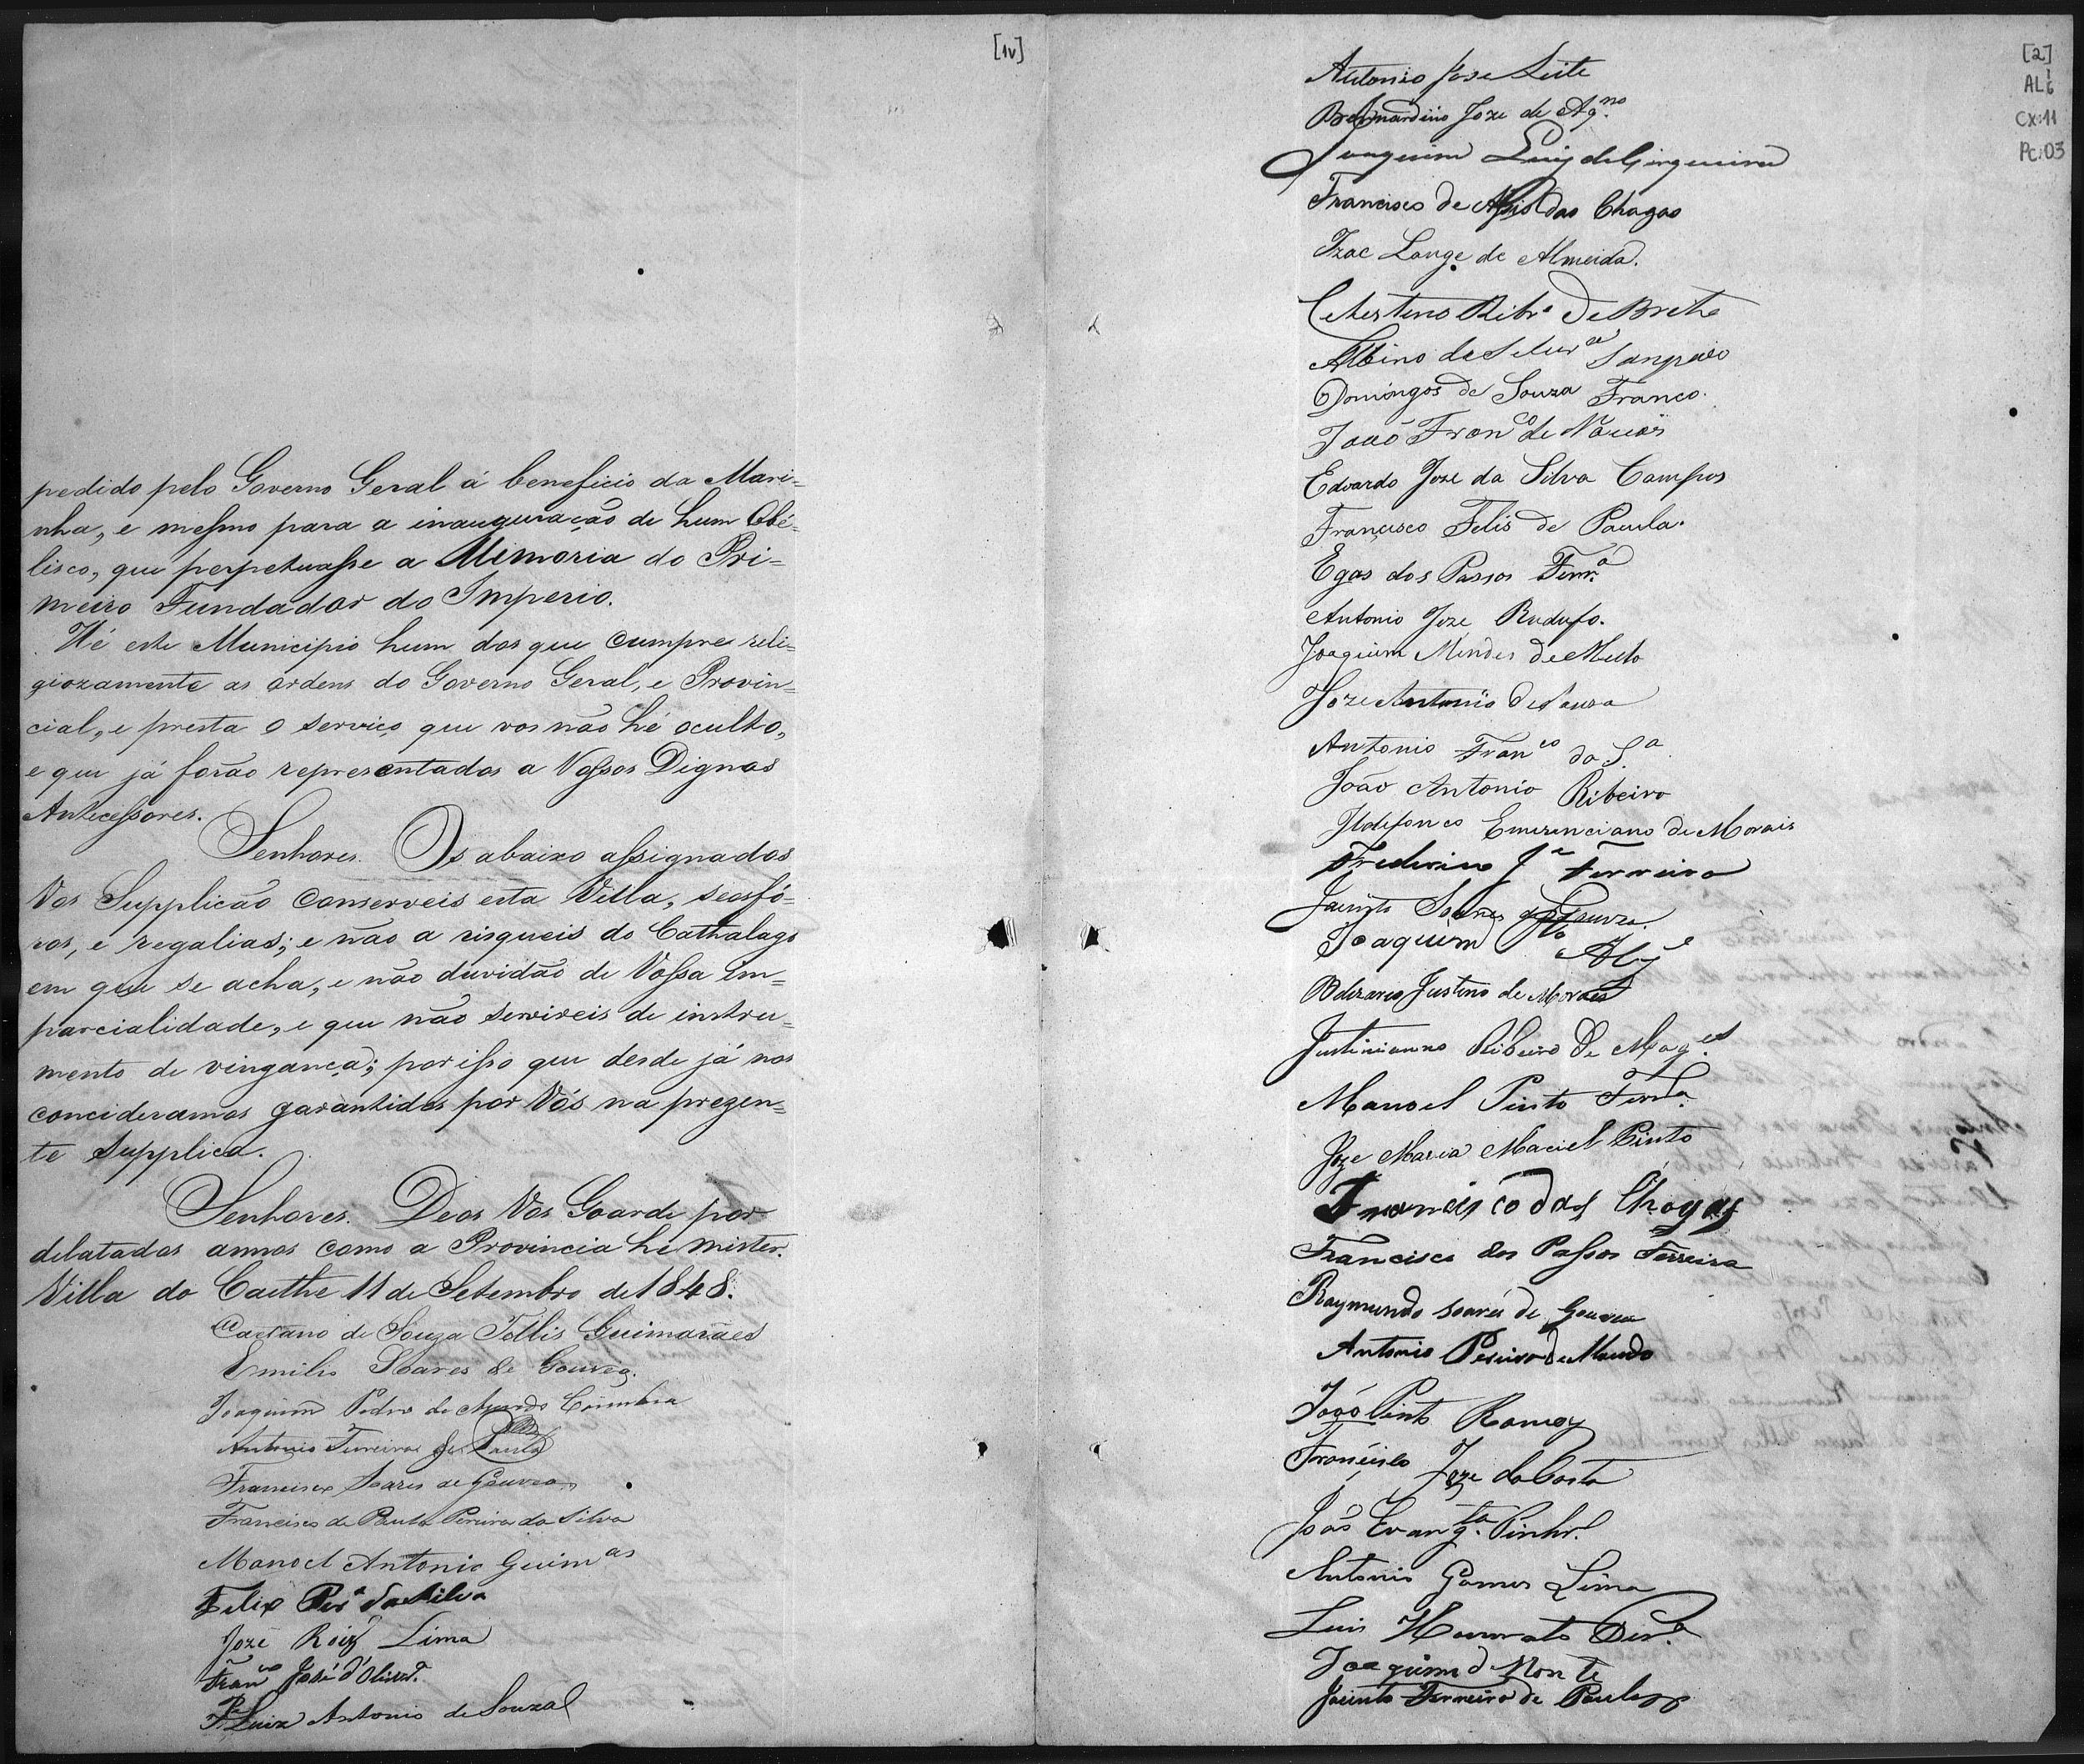 [1v]
pedido pelo Governo Geral á beneficio da Mari=
nha, e mesmo para a inauguração de hum Obé=
lisco, que perpetuasse a Memoria do Pri=
meiro Fundador do Imperio.
Hé este Municipio hum dos que cumpre reli=
giozamente as ordens do Governo Geral, e Provin=
cial, e presta o serviço que vos não hé oculto,
e que já forão representados a Vossos Dignos
Antecessores.
Senhores. Os abaixo assignados
Vos Supplicão conserveis esta Villa, seos fó=
ros, e regalias; e não a risqueis do Cathalago
em que se acha, e não duvidão de Vossa im=
parcialidade, e que não servireis de instru=
mento de vingança; por isso que desde já nos
concideramos garantidos por Vós na prezen=
te Supplica.
Senhores. Deos Vos Goarde por
delatados annos como a Provincia hé mister.
Villa do Caethe 11 de Setembro de 1848.
Caetano de Souza Tellis Guimarães
Emilio Soares de Gouvea.
Joaquim Pedro de Coimbra
Antonio Ferreira de Paula
Francisco Soares de Gouvea
Francisco de Paula Pereira da Silva
Manoel Antonio Guim.as
Felix Per.a da Silva
Joze Roiz Lima
Fran.co José d'Oliver.a
P.e Luiz Antonio de Souza
[2]
AL 1.6
CX: 11
PC: 03
Antonio Jose Leite
Bernardino Joze de Aq.no
Joaquim Luiz de Cirqueira
Francisco de Assis das Chagas
Izac Lange de Almeida.
Celestino Ribr.o de Brito
Albino da Sampaio
Domingos de Souza Franco.
João Fran.co de Novais
Edoardo Joze da Silva Campos
Francisco Felis de Paula.
Egas dos Passos Ferr.a
Antonio Joze Rodufo.
Joaquim Mendes de Mello
Joze Antonio de Souza
Antonio Fran.co da S.a
João Antonio Ribeiro
Ildefonco Emerenciano de Morais
Frederico J.e Ferreira
Jacinto Soares de Gouvea.
Joaquim
Belizario Justino de Moraes
Justiniano Ribeiro de Mag.es
Manoel Pinto Ferr.a
Joze Maria Maciel Pinto
Francisco das Chagas
Francisco dos Passos Ferreira
Raymundo Soares de Gouvea
Antonio Pereira de Macedo
João Pinto Ramos
Francisco Joze da Costa
João Evang.ta Pinhr.o
Antonio Gomes Lima
Luis Honorato Per.a
Joaquim d Monte
Jacinto Ferreira de Paula